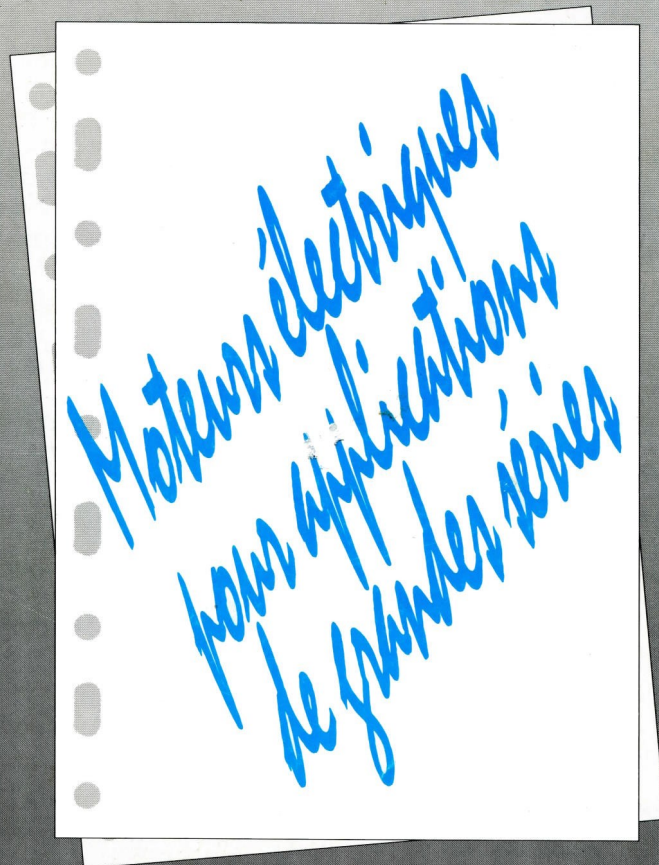 Moteurs électriques
pour applications
de grandes séries